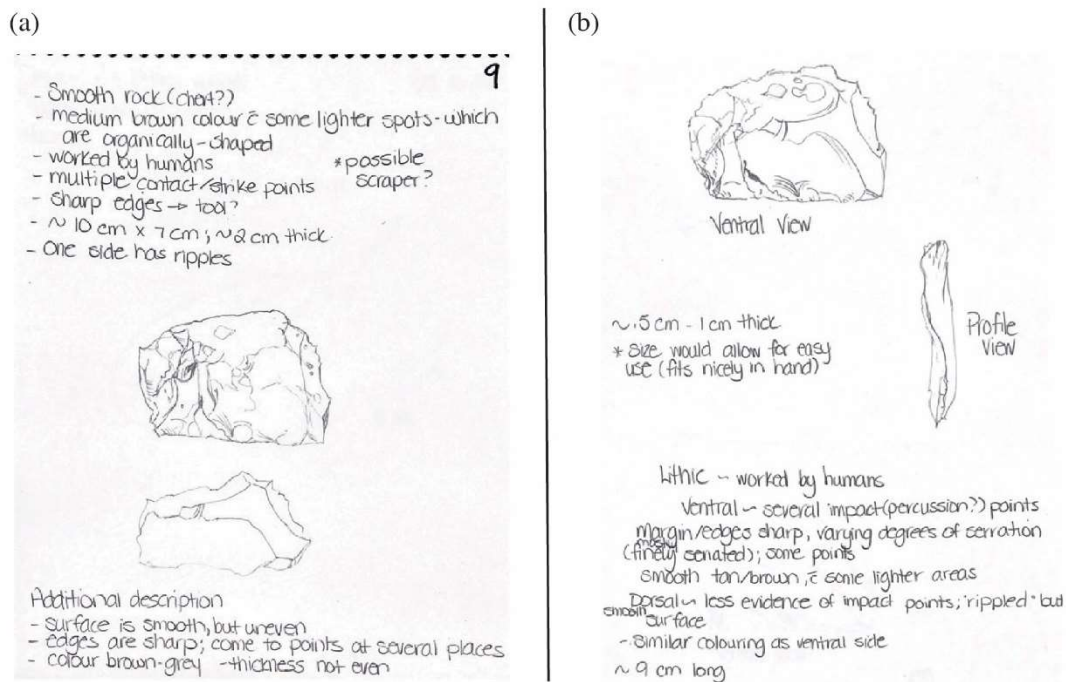 (a)
9
- Smooth rock (chert?)
- medium brown colour c̄ some lighter spots - which
are organically - shaped
- worked by humans
* possible
scraper?
- multiple contact/strike points
- Sharp edges → tool?
- ~ 10 cm x 7 cm ; ~2 cm thick
- One side has ripples
Additional description
- surface is smooth, but uneven
- edges are sharp; come to points at several places
- colour brown-grey - thickness not even
(b)
Ventral View
Profile
View
~ .5 cm - 1 cm thick
* Size would allow for easy
use (fits nicely in hand)
Lithic ~ worked by humans
Ventral ~ several impact (percussion?) points
Margin/edges sharp, varying degrees of serration
mostly
(finely serrated); some points
smooth tan/brown, c̄ some lighter areas
Dorsal ~ less evidence of impact points; "rippled" but
smooth surface
- Similar colouring as ventral side
~ 9 cm long